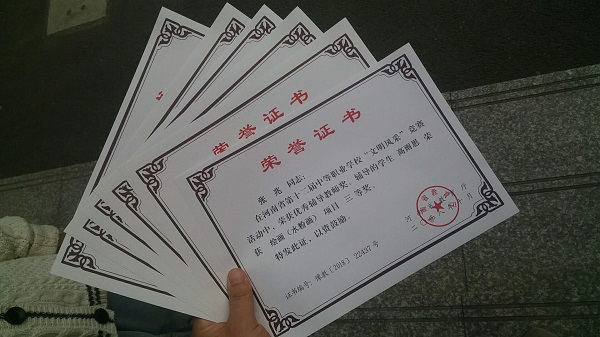 荣誉证书
荣誉证书
张兆 同志:
在河南省第十二届中等职业学校“文明风采”竞赛
活动中,荣获优秀辅导教师奖。辅导的学生 高雨思 荣
获 绘画(水粉画) 项目 三等奖。
特发此证,以资鼓励。
证书编号:豫教〔2018〕22437号